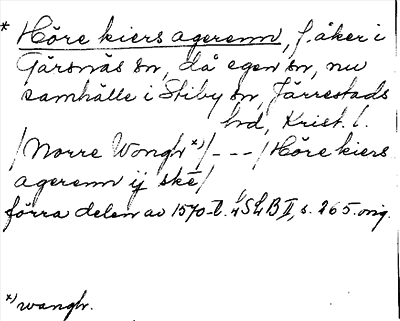 * Höre kiers agerenn, f. åker i
Gärsnäs sn, då egen sn, nu
samhälle i Stiby sn, Järrestads
hd, Krist. l.
/Norre Wongh*)/---/Höre kiers
agerenn ij ske/
förra delen av 1570-t. LSLB II, s. 265. orig.
*) wangh.